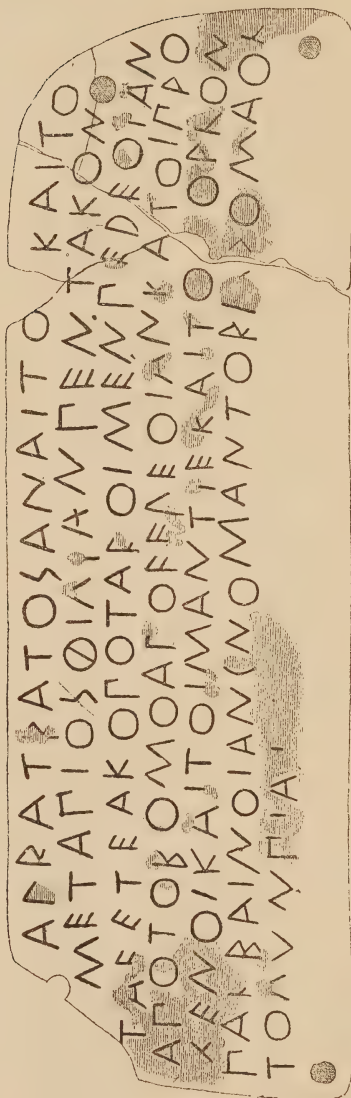 ΑϜΡΑΤΡΑΤΟΣΑΝΑΙΤΟ ΚΑΙΤΟ
ΜΕΤΑΠΙΟΣΦΙΛΙΑΝΠΕΝΤΑΚΟΝ
ΤΑϜΕΤΕΑΚΟΠΟΤΑΡΟΙΜΕΝΠΕDΕΟΙΑΝ
ΑΠΟΤΟΒΟΜΟΑΠΟϜΕΛΕΟΙΑΝΚΑΤΟΙΠΡΟ
ΧΕΝΟΙΚΑΙΤΟΙΜΑΝΤΙΕΡΑΙΤΟ ΟΡΚΟΝ
ΠΑΡΒΑΙΝΟΙΑΝΓΝΟΜΑΝΤΟΡΙ ΡΟΜΑΟΡ
ΤΟΛΥΝΠΙΑΙ